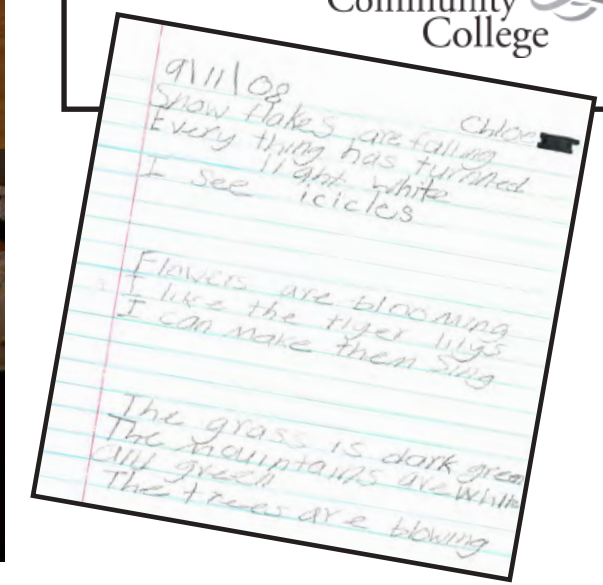 Community
College
9\11\08
Chloe
Snow flakes are falling
Every thing has turnned
light white
I see icicles
Flowers are blooming
I like the tiger lilys
I can make them Sing
The grass is dark green
The mountains are white
and green
The trees are blowing